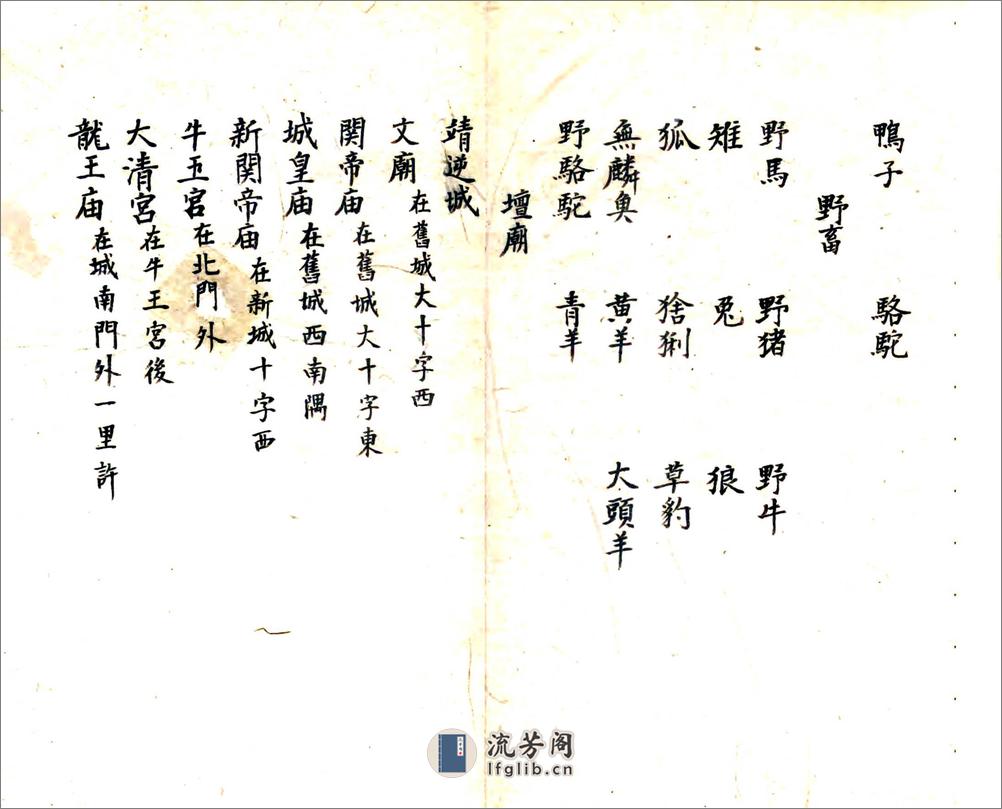 鴨子 駱駝
野畜
野馬 野猪 野牛
雉 兎 狼
狐 猞猁 草豹
無麟臭 黄羊 大頭羊
野駱駝 青羊
壇廟
靖逆城
文廟 在舊城大十字西
関帝庙 在舊城大十字東
城皇庙 在舊城西南隅
新関帝庙 在新城十字西
牛王宮 在北門外
大清宮 在牛王宮後
龍王庙 在城南門外一里許
流芳阁
lfglib.cn